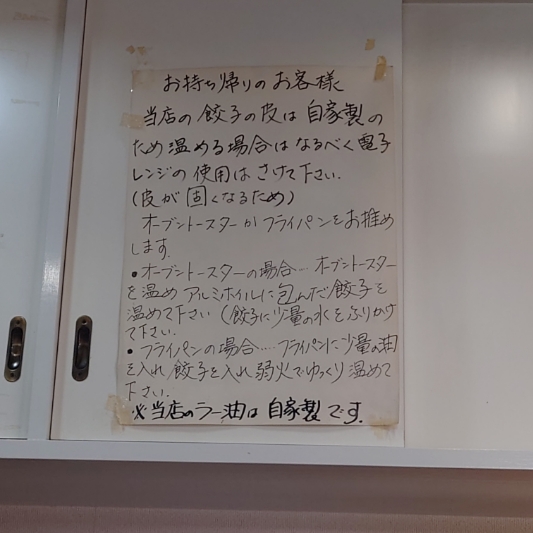 お持ち帰りのお客様
当店の餃子の皮は自家製の
ため温める場合はなるべく電子
レンジの使用はさけて下さい.
(皮が固くなるため)
オーブントースターかフライパンをお推め
します.
•オーブントースターの場合…オーブントースター
を温めアルミホイルに包んだ餃子を
温めて下さい(餃子に少量の水をふりかけ
て下さい.
•フライパンの場合……フライパンに少量の油
を入れ餃子を入れ弱火でゆっくり温めて
下さい.
※当店のラー油は自家製です.